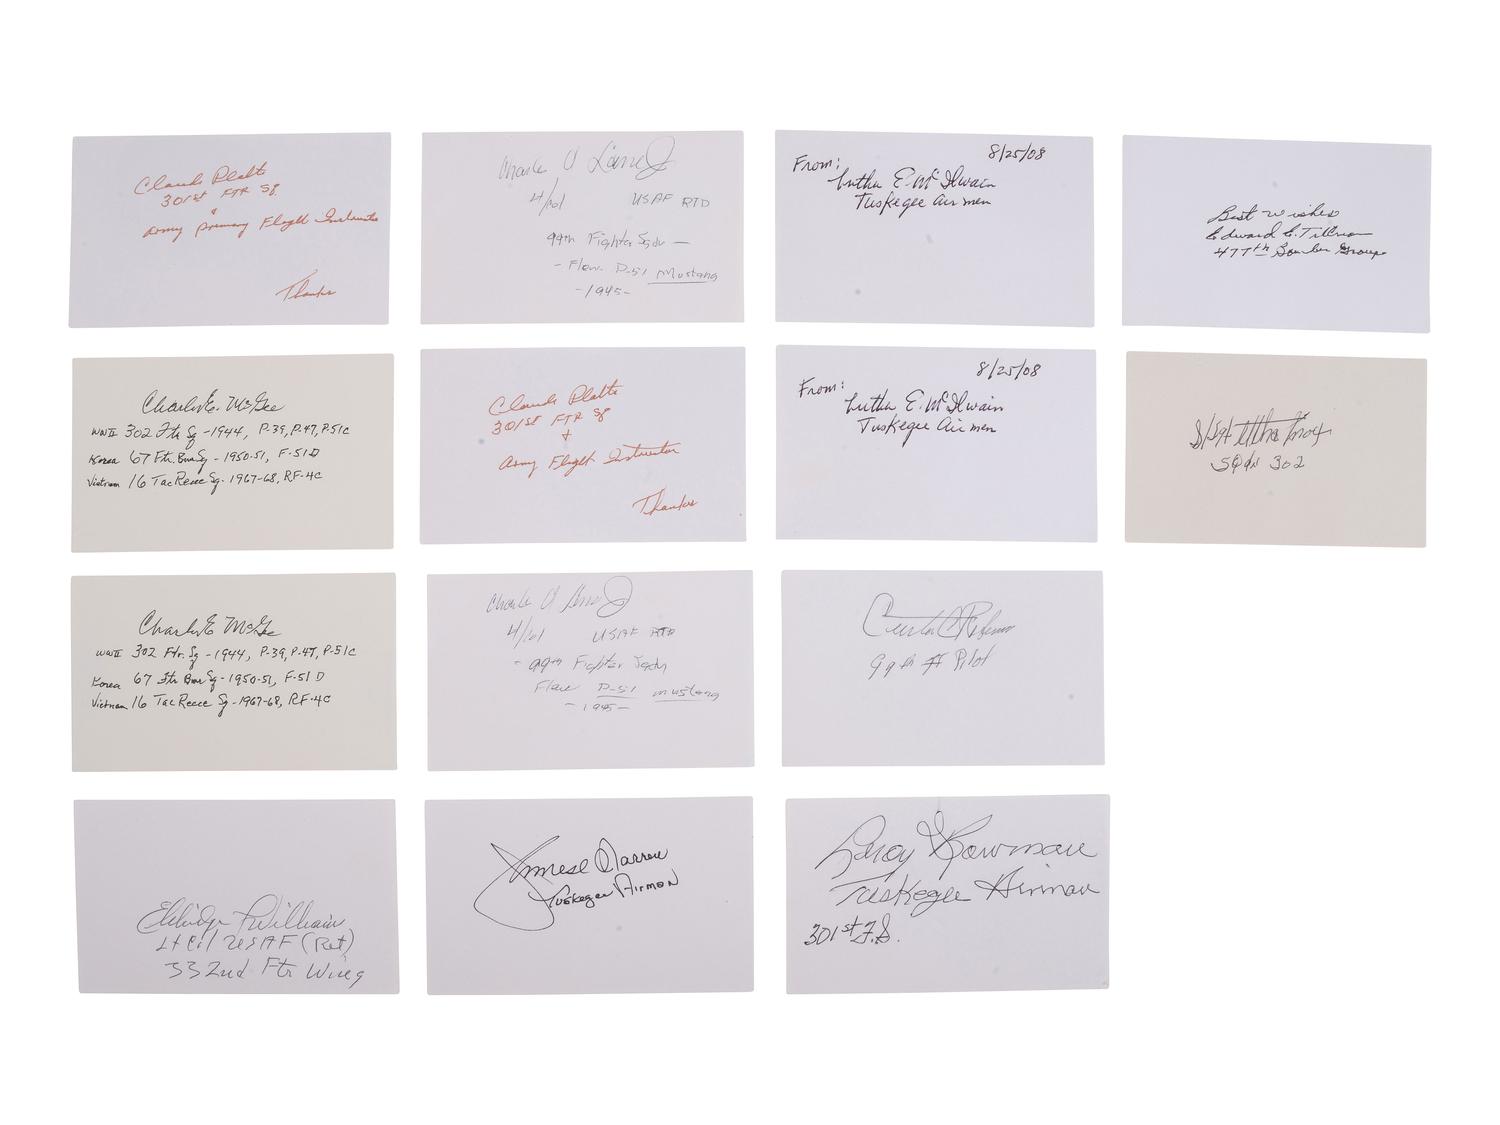 Claude Platte
301st FTR Sq
&
Army primary Flight Instructor
Thanks
Charles A Lane Jr
Lt/Col USAF RTD
99th Fighter Sqdn —
- Flew P-51 Mustang
-1945-
8/25/08
From:
Luther E. McIlwain
Tuskegee Airmen
Best wishes
Edward E. Tillmon
477th Bomber Group
Charles E. McGee
WWII 302 Ftr Sq -1944, P-39, P-47, P-51C
Korea 67 Ftr. Bmr Sq - 1950-51, F-51D
Vietnam 16 Tac Recce Sq. 1967-68, RF-4C
Claude Platte
301st FTR Sq
+
Army Flight Instructor
Thanks
8/25/08
From:
Luther E. McIlwain
Tuskegee Airmen
S/Sgt
SQdn 302
Charles E McGee
WWII 302 Ftr. Sq - 1944, P-39, P-47, P-51C
Korea 67 Ftr Bmr Sq - 1950-51, F-51 D
Vietnam 16 Tac Recce Sq - 1967-68, RF-4C
Charles A Lane Jr
Lt/Col USAF RTD
- 99th Fighter Sqdn
Flew P-51 mustang
- 1945 -
Curtis C Robinson
99th Pilot
Eldridge F Williams
Lt Col USAF (Ret)
332nd Ftr Wing
James Warren
Tuskegee Airmon
Leroy Bowman
Tuskegee Airman
301st F.S.